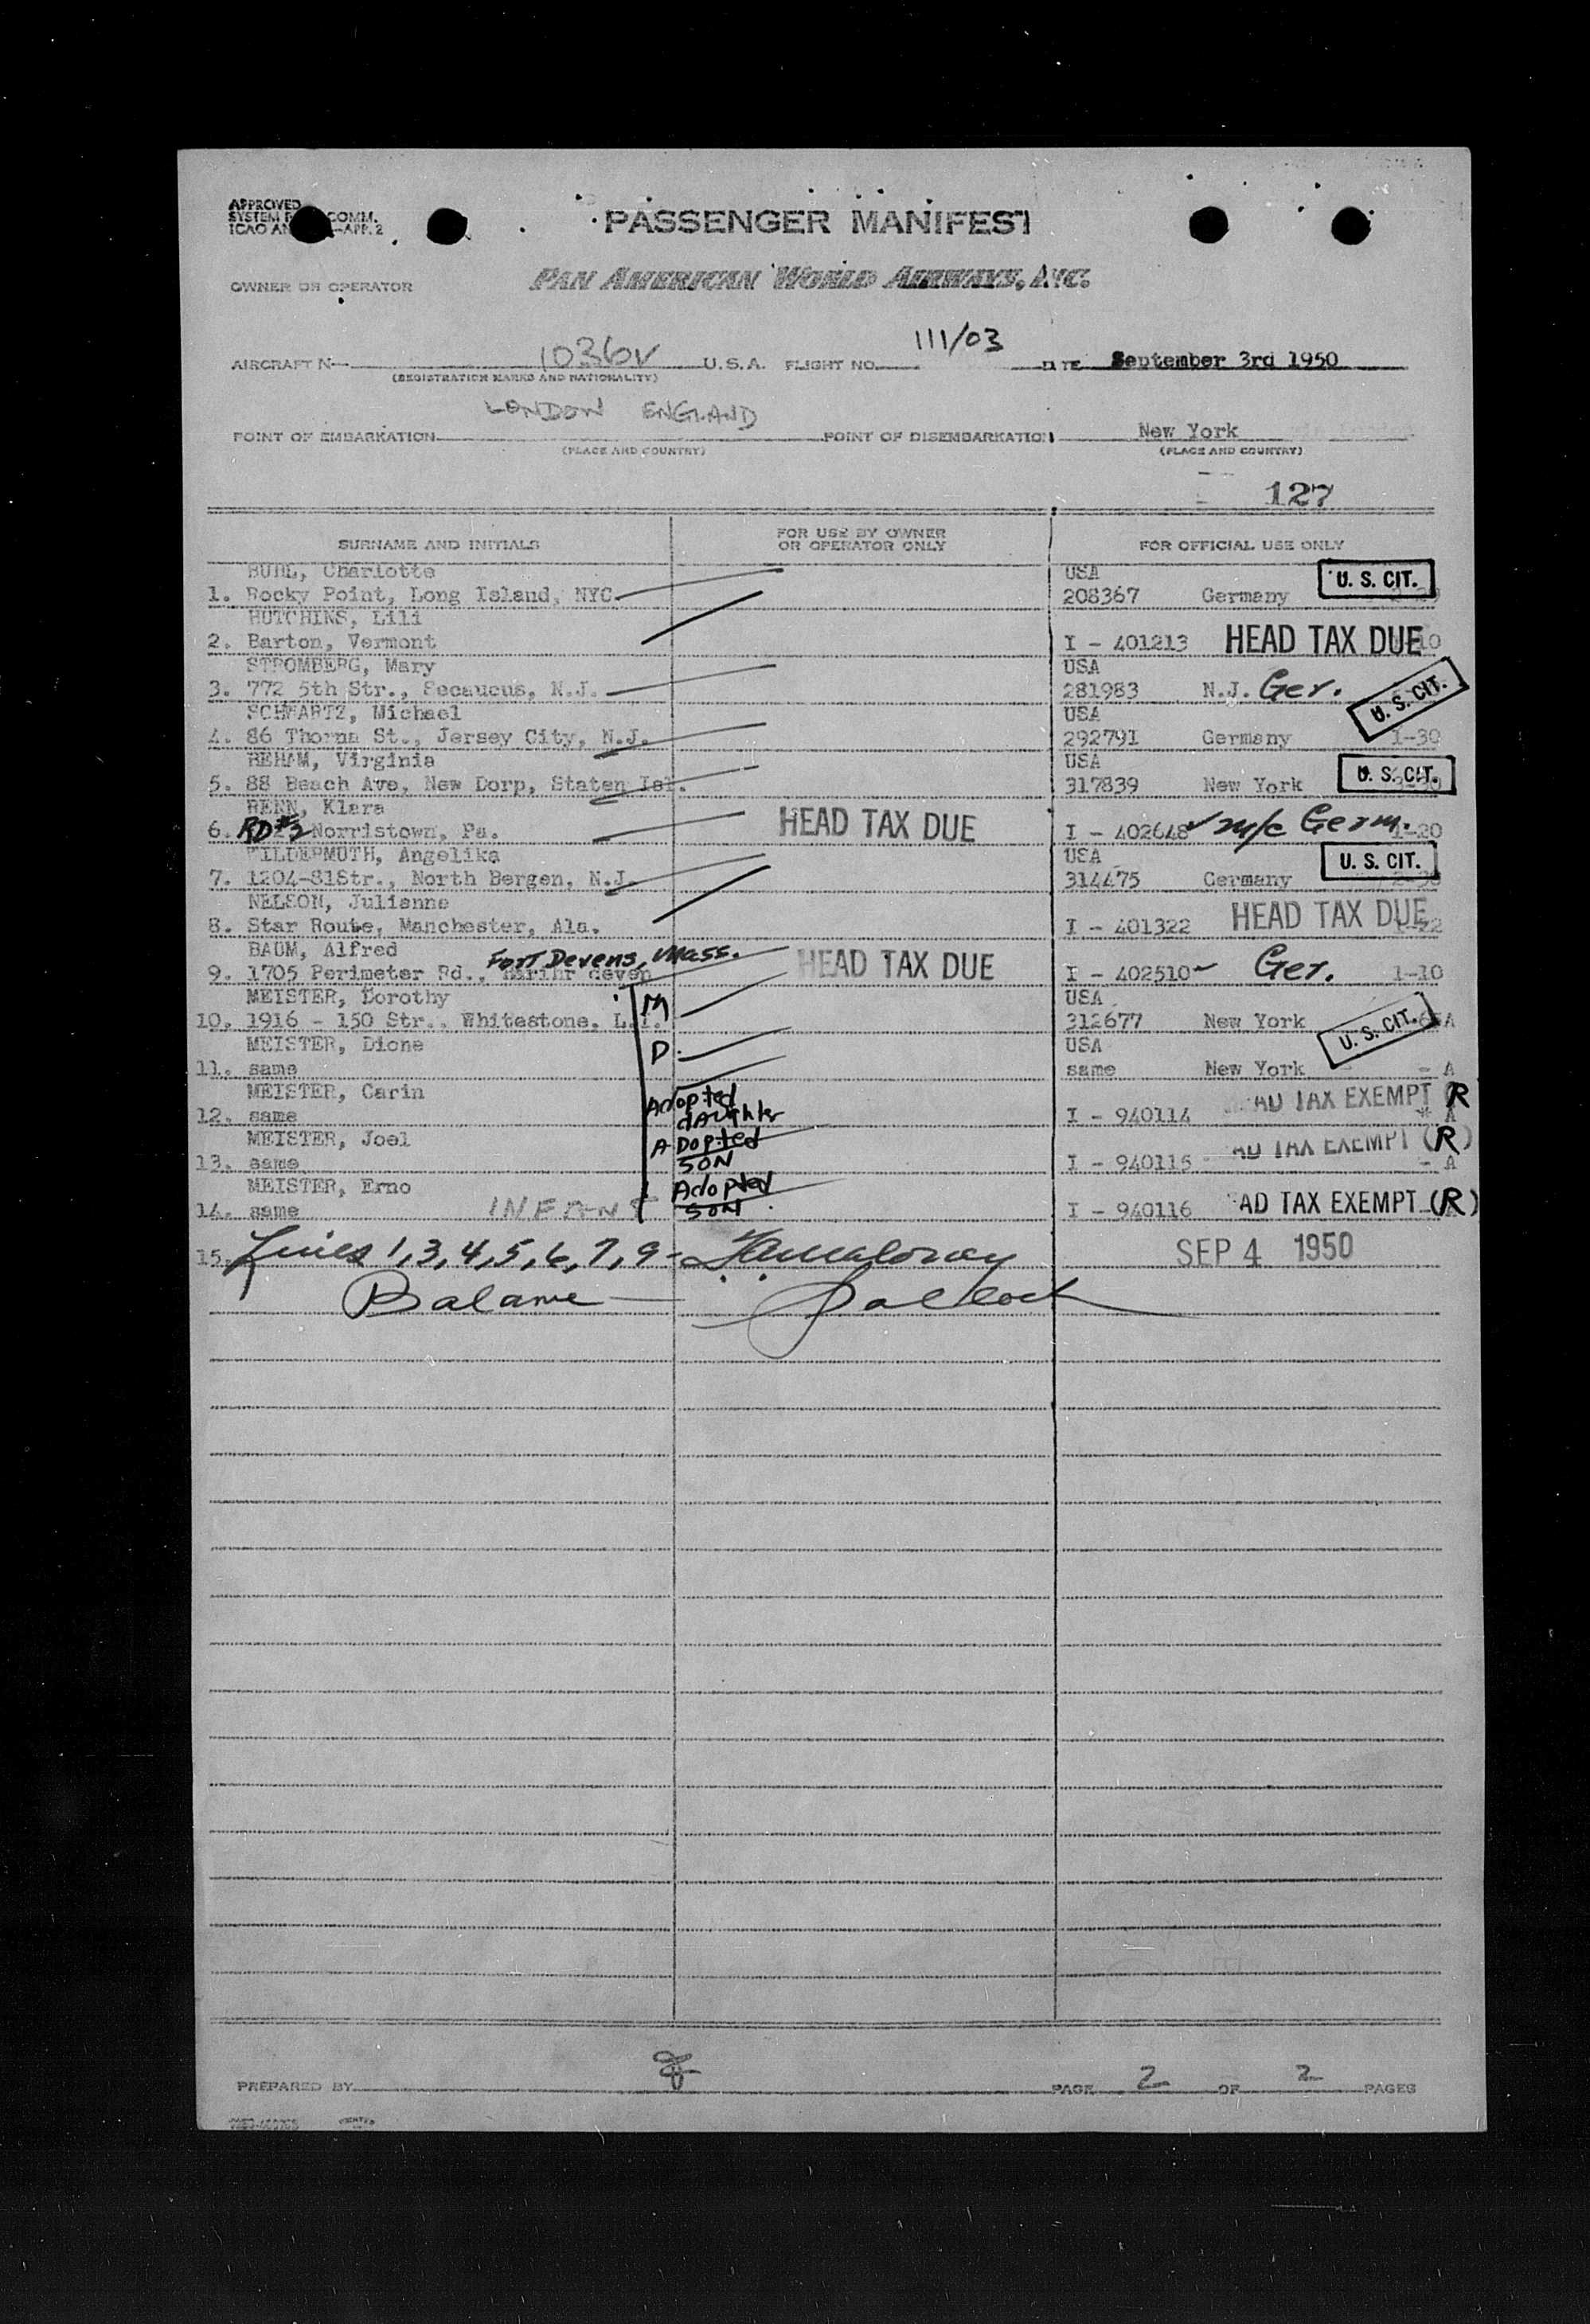 APPROVED
SYSTEM COMM.
ICAO AN —APP. 2
PASSENGER MANIFEST
OWNER OR OPERATOR
PAN AMERICAN WORLD AIRWAYS, INC.
AIRCRAFT N 1036V U.S.A. FLIGHT NO. 111/03 DATE September 3rd 1950
(REGISTRATION MARKS AND NATIONALITY)
POINT OF EMBARKATION LONDON ENGLAND POINT OF DISEMBARKATION New York
(PLACE AND COUNTRY) (PLACE AND COUNTRY)
127
SURNAME AND INITIALS FOR USE BY OWNER OR OPERATOR ONLY FOR OFFICIAL USE ONLY
BUHL, Charlotte USA U. S. CIT.
1. Rocky Point, Long Island, NYC. 208367 Germany
HUTCHINS, Lili
2. Barton, Vermont I - 401213 HEAD TAX DUE
STROMBERG, Mary USA
3. 772 5th Str., Secaucus, N.J. 281983 N.J. Ger. U. S. CIT.
SCHWARTZ, Michael USA
4. 86 Thorna St., Jersey City, N.J. 292791 Germany 1-30
BEHAM, Virginia USA
5. 88 Beach Ave, New Dorp, Staten Isl. 317839 New York U. S. CIT.
BENN, Klara
6. RD#2 Norristown, Pa. HEAD TAX DUE I - 402648 m/c Germ. 1-20
WILDERMUTH, Angelika USA
7. 1204-81Str., North Bergen, N.J. 314475 Germany U. S. CIT.
NELSON, Julianne
8. Star Route, Manchester, Ala. I - 401322 HEAD TAX DUE
BAUM, Alfred Fort Devens, Mass.
9. 1705 Perimeter Rd., HEAD TAX DUE I - 402510 Ger. 1-10
MEISTER, Dorothy M USA
10. 1916 - 150 Str., Whitestone, L.I. 312677 New York U. S. CIT.
MEISTER, Dione D USA
11. same same New York - A
MEISTER, Carin Adopted
12. same daughter I - 940114 AD TAX EXEMPT (R
MEISTER, Joel Adopted
13. same SON I - 940115 AD TAX EXEMPT (R) - A
MEISTER, Erno Adopted
14. same INFANT SON I - 940116 AD TAX EXEMPT (R)
15. Lines 1, 3, 4, 5, 6, 7, 9 - SEP 4 1950
Balance —
PREPARED BY PAGE 2 OF 2 PAGES